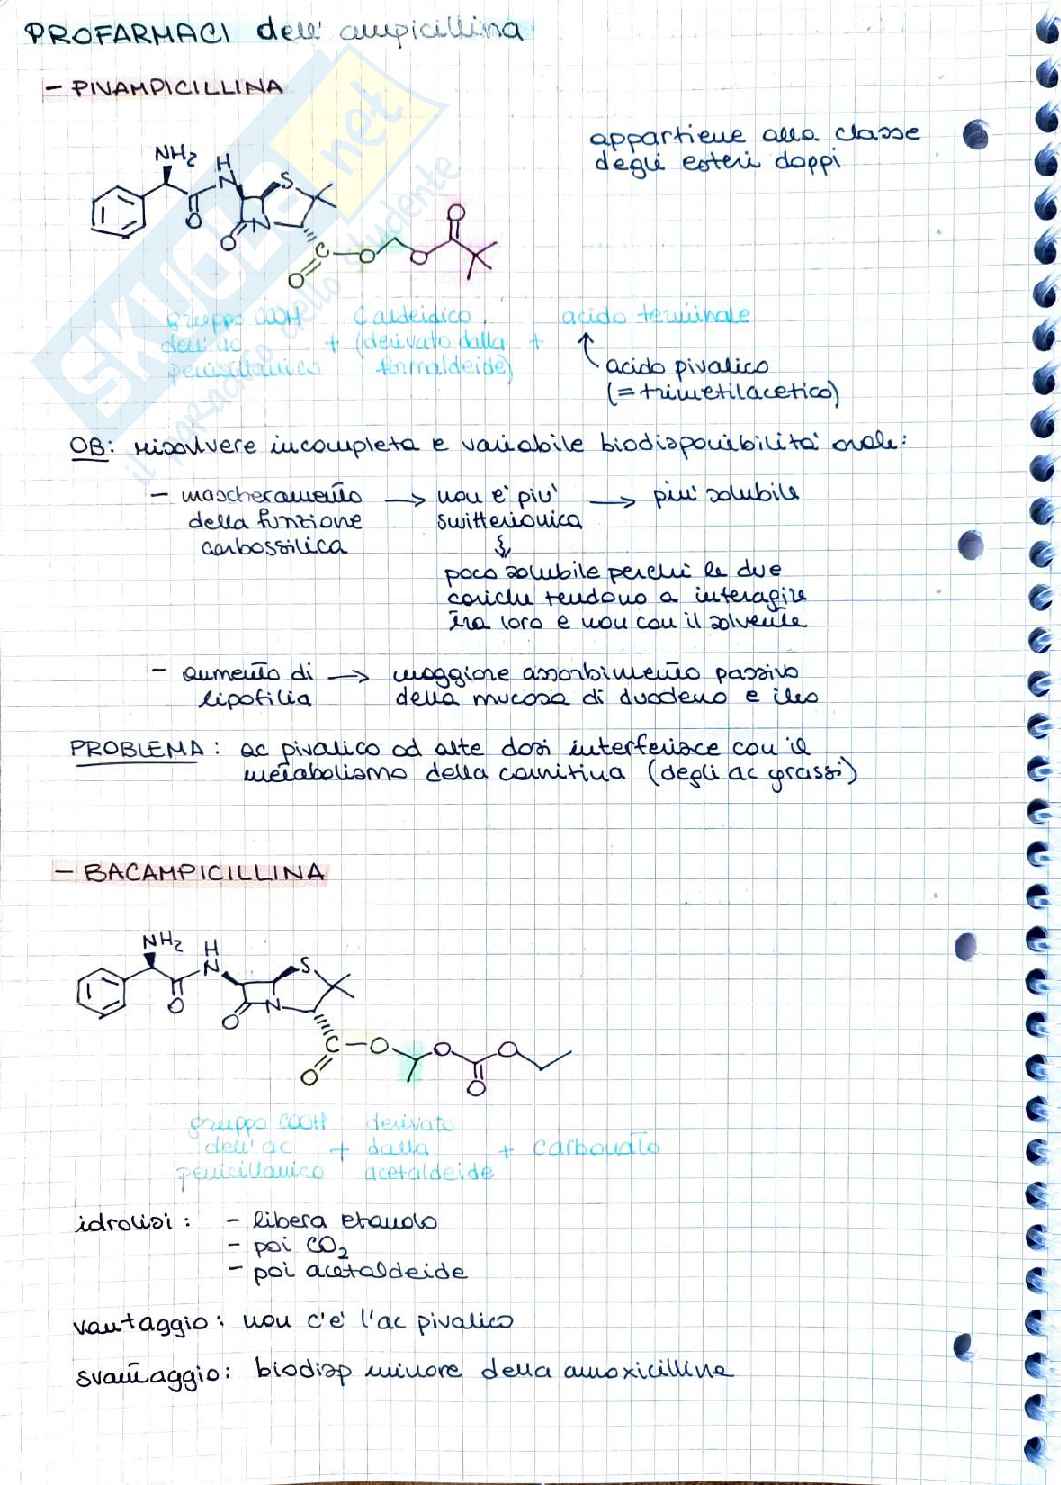 PROFARMACI dell' ampicillina
- PIVAMPICILLINA
appartiene alla classe
degli esteri doppi
NH₂
H
N
S
O
O
N
C
O
O
O
O
gruppo COOH
dell'ac
penicillanico
+
C aldeidico
(derivato dalla
formaldeide)
+
acido terminale
acido pivalico
(= trimetilacetico)
OB: risolvere incompleta e variabile biodisponibilità orale:
- mascheramento
della funzione
carbossilica
→ non e' piu'
switterionica
→ piu' solubile
poco solubile perchè le due
cariche tendono a interagire
tra loro e non con il solvente
- aumento di
lipofilia
→ maggiore assorbimento passivo
della mucosa di duodeno e ileo
PROBLEMA: ac pivalico ad alte dosi interferisce con il
metabolismo della carnitina (degli ac grassi)
- BACAMPICILLINA
NH₂
H
N
S
O
O
N
C
O
O
O
O
O
gruppo COOH
dell'ac
penicillanico
+
derivato
dalla
acetaldeide
+ carbonato
idrolisi: - libera etanolo
- poi CO₂
- poi acetaldeide
vantaggio: non c'e' l'ac pivalico
svantaggio: biodisp minore della amoxicillina
SKUOLA.net
il paradiso dello studente